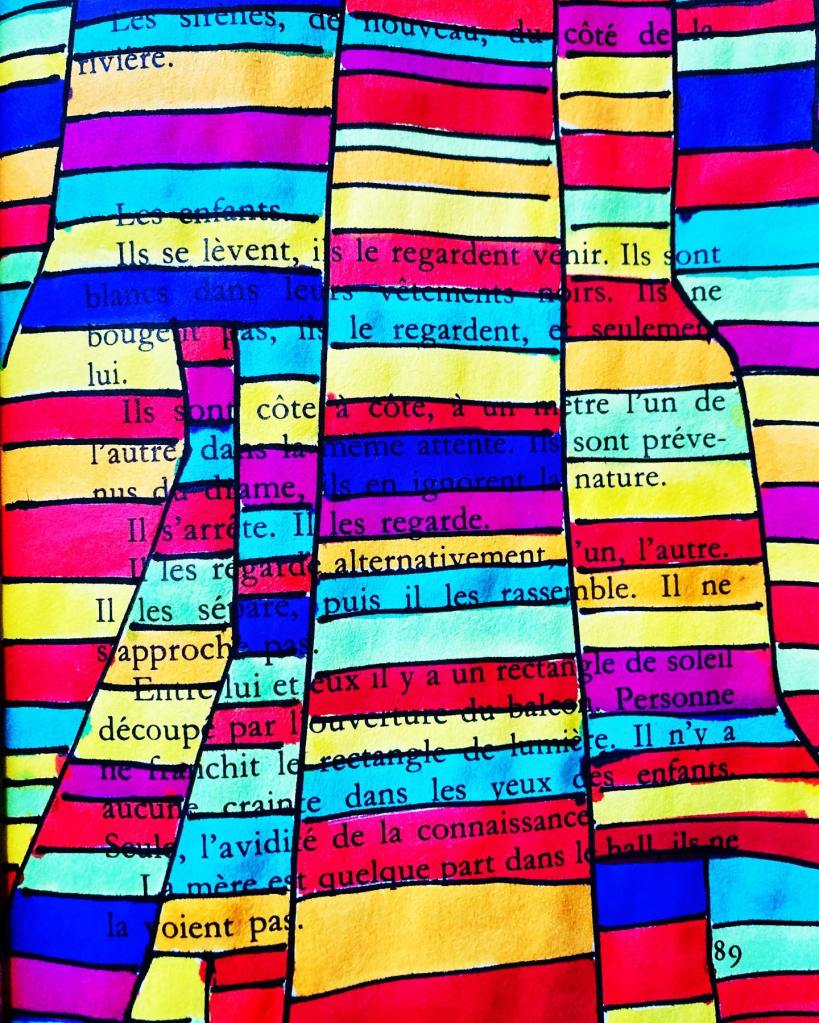 Les sirènes, de nouveau, du côté de la
rivière.
Les enfants.
Ils se lèvent, ils le regardent venir. Ils sont
blancs dans leurs vêtements noirs. Ils ne
bougent pas, ils le regardent, et seulement
lui.
Ils sont côte à côte, à un mètre l'un de
l'autre, dans la même attente. Ils sont préve-
nus du drame, ils en ignorent la nature.
Il s'arrête. Il les regarde.
Il les regarde alternativement, l'un, l'autre.
Il les sépare, puis il les rassemble. Il ne
s'approche pas.
Entre lui et eux il y a un rectangle de soleil
découpé par l'ouverture du balcon. Personne
ne franchit le rectangle de lumière. Il n'y a
aucune crainte dans les yeux des enfants.
Seule, l'avidité de la connaissance
La mère est quelque part dans le hall, ils ne
la voient pas.
89